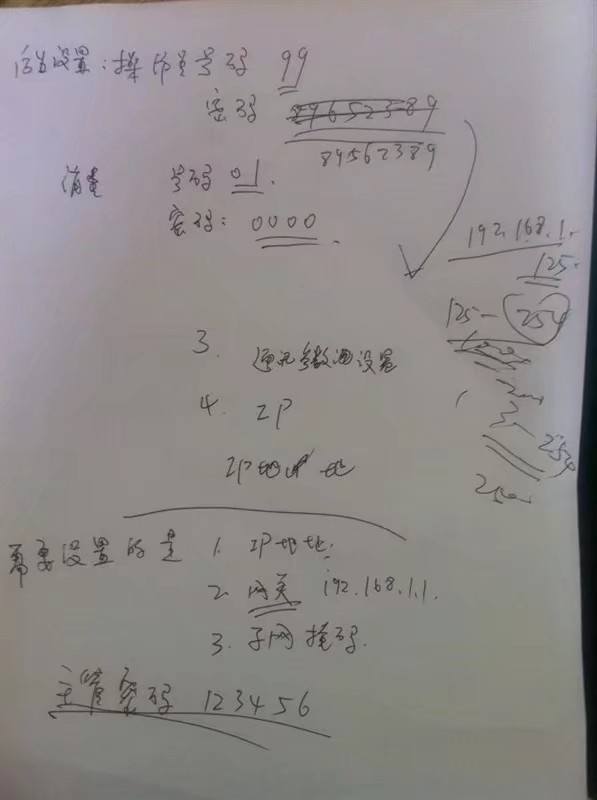 后台设置:操作员号码 99
密码 89652389
89562389
消费 号码 01.
密码: 0000.
192.168.1.
125.
125-254
3. 通讯参数设置
4. IP
IP地址
254
需要设置的是 1. IP地址:
2. 网关 192.168.1.1.
3. 子网掩码.
主管密码 123456